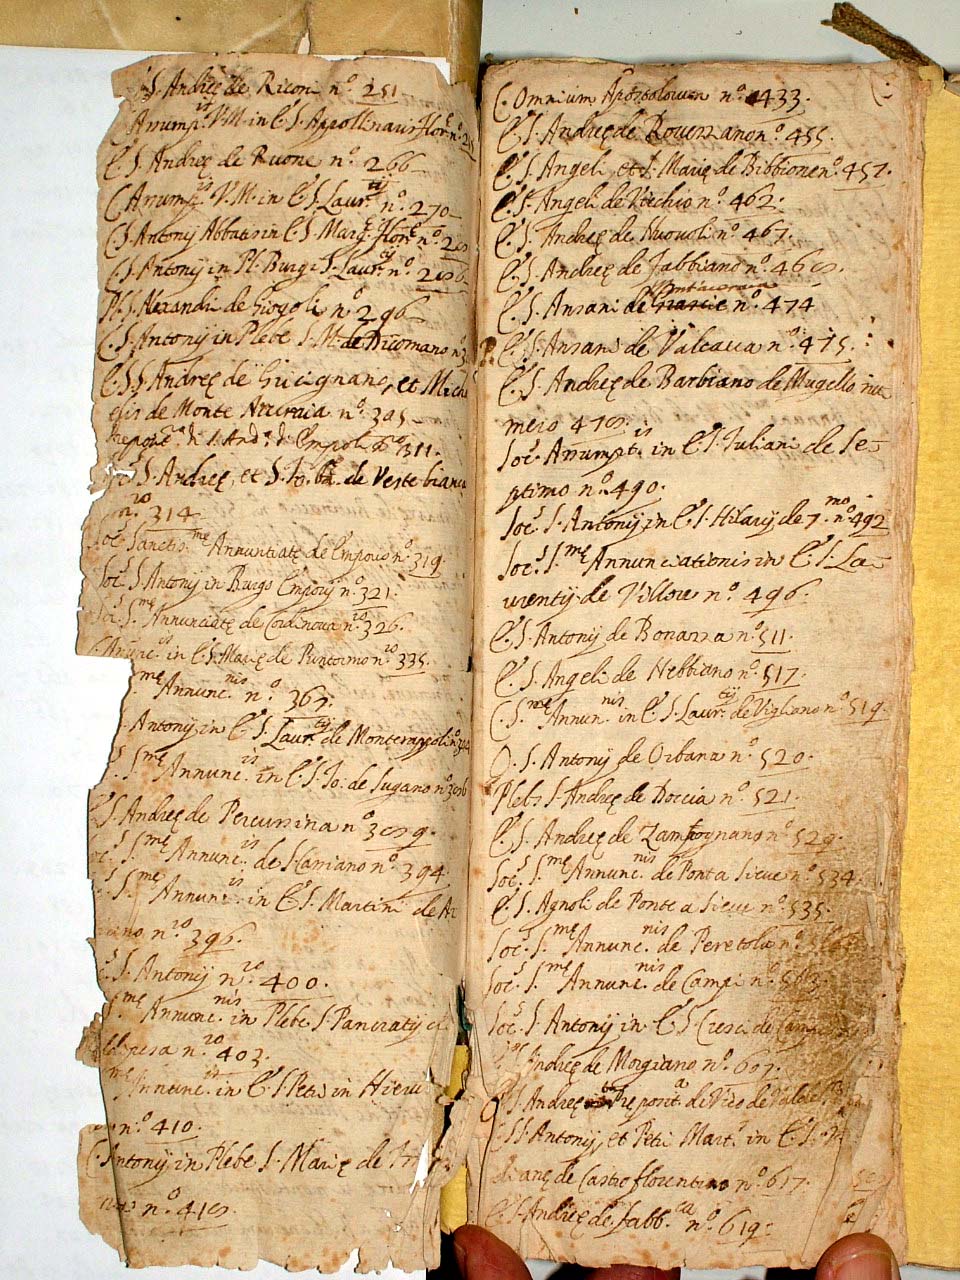 S. Andreę de Riconi nº. 251
Assumpt. V.M. in E. S. Appollinaris Flor. nº.
E. S. Andreę de Ruone nº. 266
C. Assumpt.is V.M. in E. S. Laur.tij nº. 270
C. S. Antonij Abbatis in E. S. Marg.ę Flor.ę nº.
C. S. Antonij in Pl. Burgi S. Laur.ij nº. 286
Pl. S. Alexandri de Giogoli nº 296
C. S. Antonij in Plebe S. M. de Dicomano nº
E. S.S. Andreę de Gricignano, et Mich
elis de Monte Acuraia nº. 305
Prepos.ra di S. And.a di Empoli nº 311.
S. Andreę, et S. Jo. bã. de Verte bianca
n.ro 314
Soc.s Sanctis.mę Annuntiatę de Emporio nº. 319.
Soc.s S. Antonij in Burgo Emporij nº. 321.
Soc.s S.mę Annunciatę de Cordinova n.ro 326.
Annunc.is in E. S. Marię de Puntormo n.ro 335.
S.mę Annunc.nis nº. 367.
Antonij in E. S. Laur.tij de Monterappoli nº
S. S.mę Annunc.is in E. S. Jo. de Sugano nº 386
E. S. Andreę de Percussina nº 389.
Soc.s S.mę Annunc.is de Haniano nº. 394
S. S.mę Annunc.is in E. S. Martini de
n.ro 396.
S. Antonij n.ro 400.
S.mę Annunc.nis in Plebe S. Pancratij
pesa n.ro 403.
S.mę Annunc.is in E. S. Petri in Hieru
nº 410.
C. S. Antonij in Plebe S. Marię de
nº. 418.
C. Omnium Apostolorum nº. 433.
E. S. Andreę de Rovezzano nº. 455.
E. S. Angeli, et S. Marię de Bibbione nº. 457.
E. S. Angeli de Vechio nº. 462.
E. S. Andreę de Nuovoli nº. 467.
E. S. Andreę de Fabbiano nº. 468.
E. S. Ansani de nº. 474
E. S. Ansani de Valcava nº. 475.
E. S. Andreę de Barbiano de Mugello nu
mero 478.
Soc.s Assumpt.is in E. S. Juliani de Se-
ptimo nº. 490.
Soc.s S. Antonij in E. S. Hilarij de 7.mo nº. 492
Soc.s S.mę Annunciationis in E. S. La-
urentij de Villore nº. 496.
E. S. Antonij de Bonazza nº. 511.
E. S. Angeli de Nebbiano nº. 517.
C. S.mę Annun.nis in E. S. Laur.tij de Vigliano nº. 519.
O. S. Antonij de Orbana nº. 520.
Plebs S. Andreę de Doccia nº. 521.
E. S. Andreę de Zampognano nº. 529.
Soc.s S.mę Annunc.nis de Ponta Sieve nº. 534.
E. S. Agnoli de Ponte a Sieve nº. 535.
Soc.s S.mę Annunc.nis de Peretola nº.
Soc.s S.mę Annunc.nis de Campi nº. 563.
Soc.s S. Antonij in E. S. Cresci de Campi
S. Andreę de Morgiano nº. 607.
E. S. Andreę Preposit.a de Vico de
C. SS. Antonij, et Petri Mart.s in E. S.
de Castro florentino nº. 617.
E. S. Andreę de Fabb.ca nº. 619.